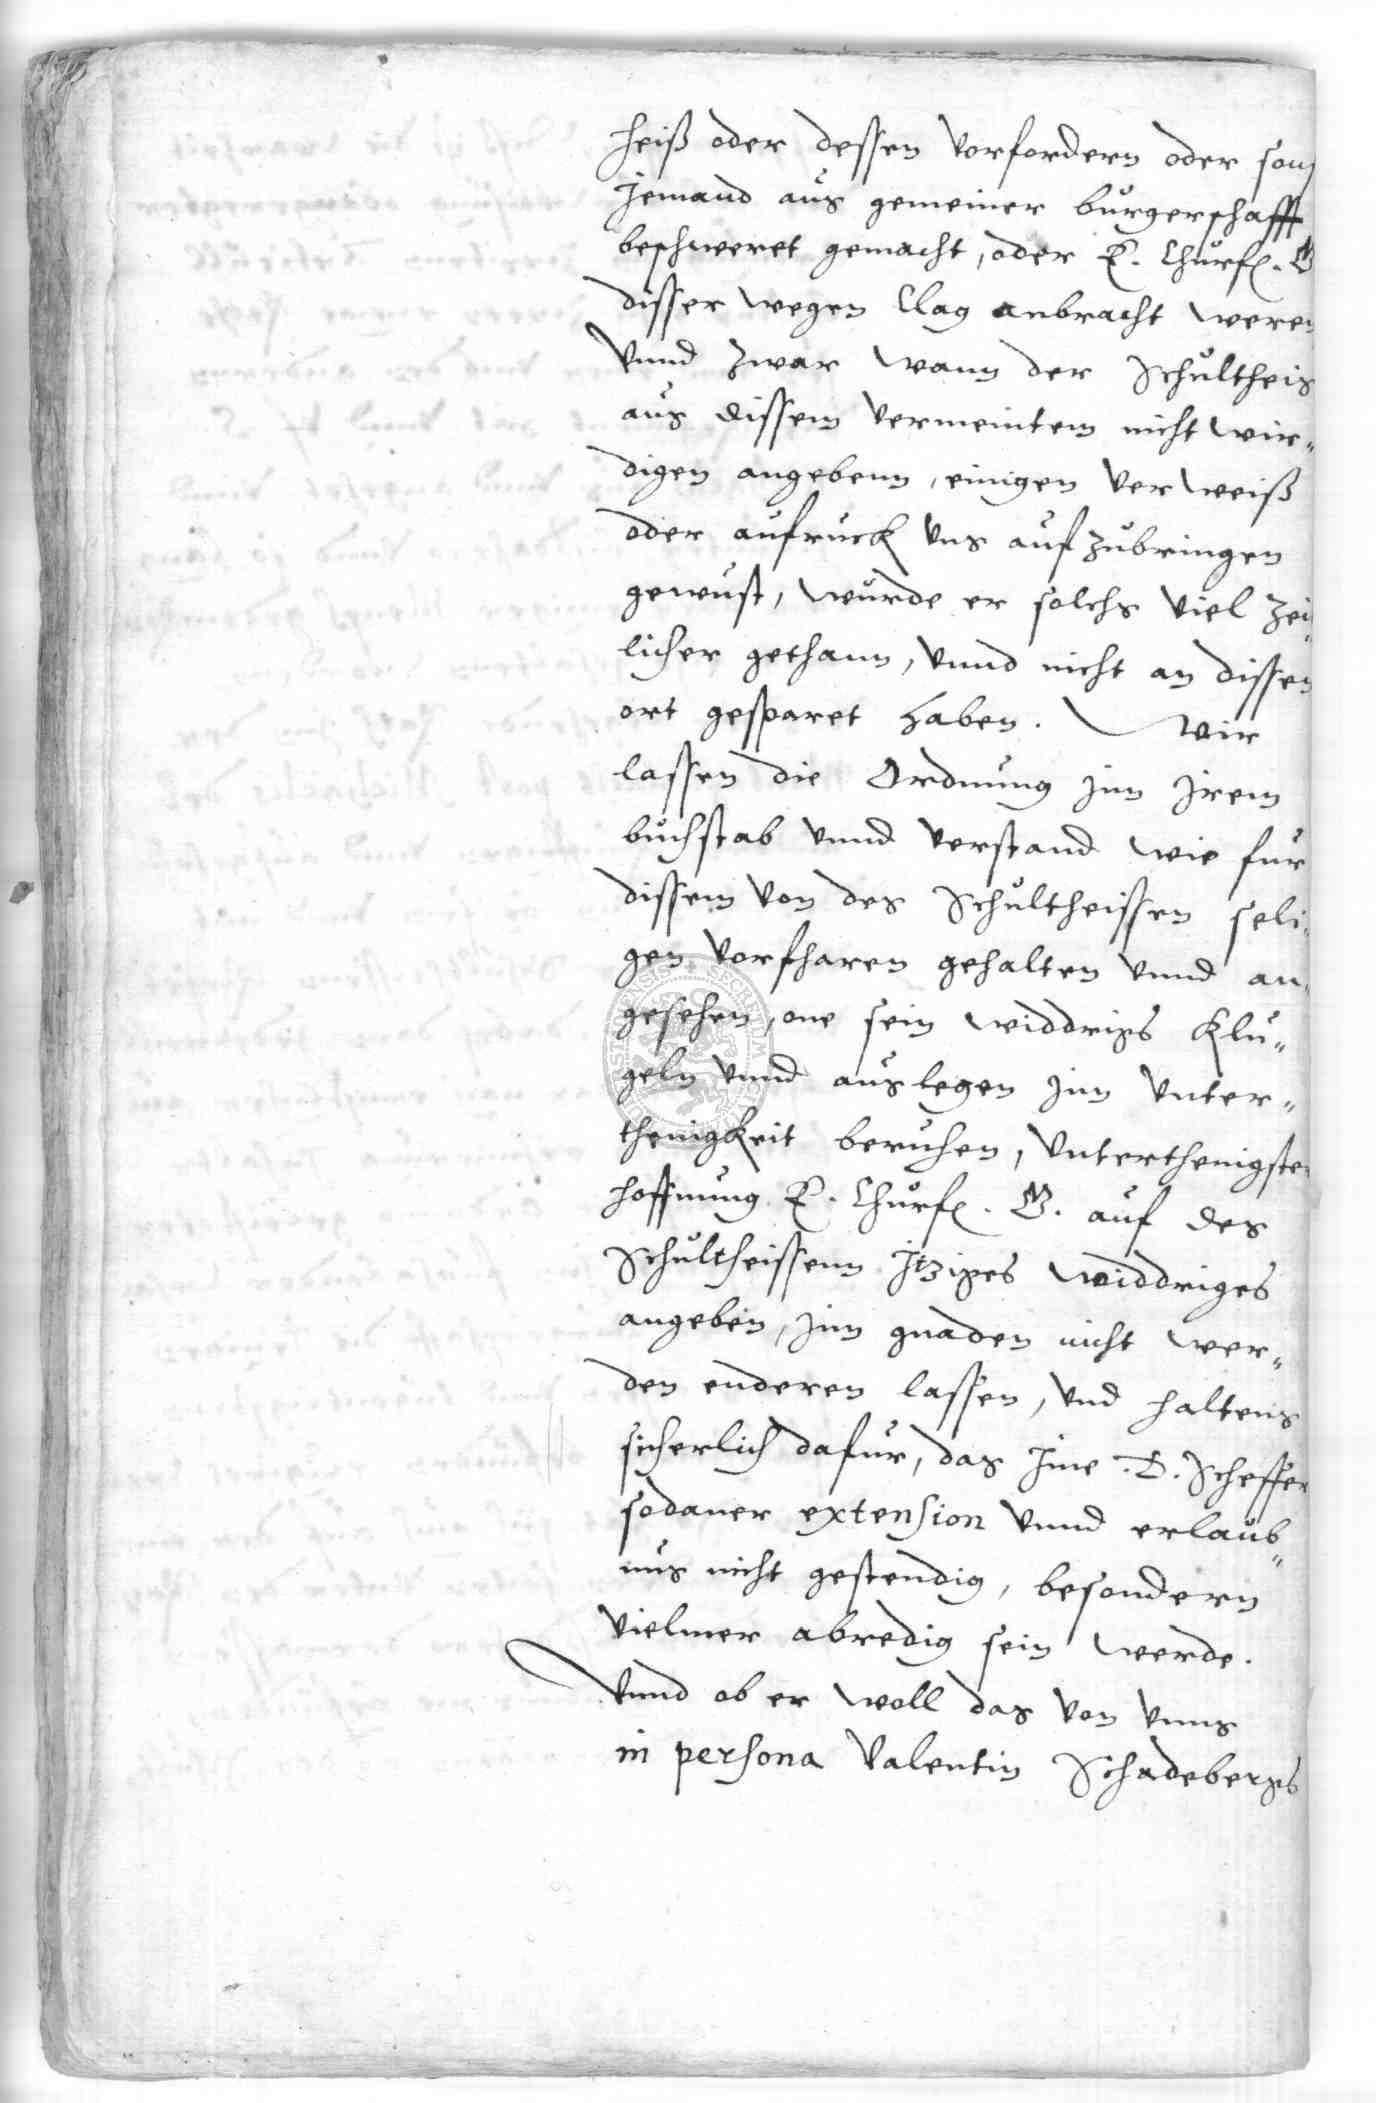 heiß oder dessen vorfordern oder son
Jemand aus gemeiner burgerschafft
beschweret gemacht, oder E. Churf. G
disser wegen Clag anbracht weren
Vnnd zwar wann der Schultheis
aus dissem vermeintem nicht wir„
digen angebenn, einigen verweiß
oder aufruck vns aufzubringen
gewust, wurde er solchs viel zei„
licher gethann, vnnd nicht an dissen
ort gesparet haben. Wir
lassen die Ordnung Jnn Jrem
buchstab vnnd verstand wie fur
dissem von des Schultheissen seli„
gen Vorfharen gehalten vnnd an„
gesehen, one sein widdrigs klu„
geln vnnd auslegen Jnn vnter„
thenigkeit beruhen, vnterthenigster
hoffnung E. Churf. G. auf des
Schultheissenn Jtziges widdriges
angeben, Jnn gnaden nicht wer„
den enderen lassen, vnd haltens
sicherlich dafur, das Jme D. Scheffer
sodaner extension vnnd erlaub„
nus nicht gestendig, besondern
vielmer abredig sein werde.
Vnnd ob er woll das von vnns
in persona Valentin Schadebergs